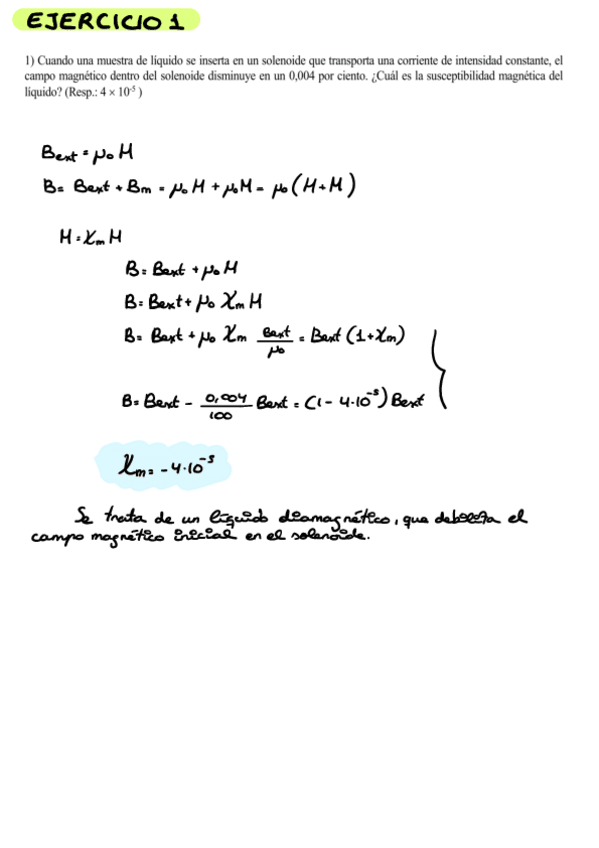 EJERCICIO 1
1) Cuando una muestra de líquido se inserta en un solenoide que transporta una corriente de intensidad constante, el
campo magnético dentro del solenoide disminuye en un 0,004 por ciento. ¿Cuál es la susceptibilidad magnética del
líquido? (Resp.: 4 × 10⁻⁵ )
Bext = μ₀ H
B = Bext + Bm = μ₀ H + μ₀ M = μ₀ (H + M)
M = χm H
B = Bext + μ₀ M
B = Bext + μ₀ χm H
B = Bext + μ₀ χm Bext/μ₀ = Bext (1 + χm)
B = Bext - 0,004/100 Bext = (1 - 4·10⁻⁵) Bext
χm = -4·10⁻⁵
Se trata de un líquido diamagnético, que debilita el
campo magnético inicial en el solenoide.